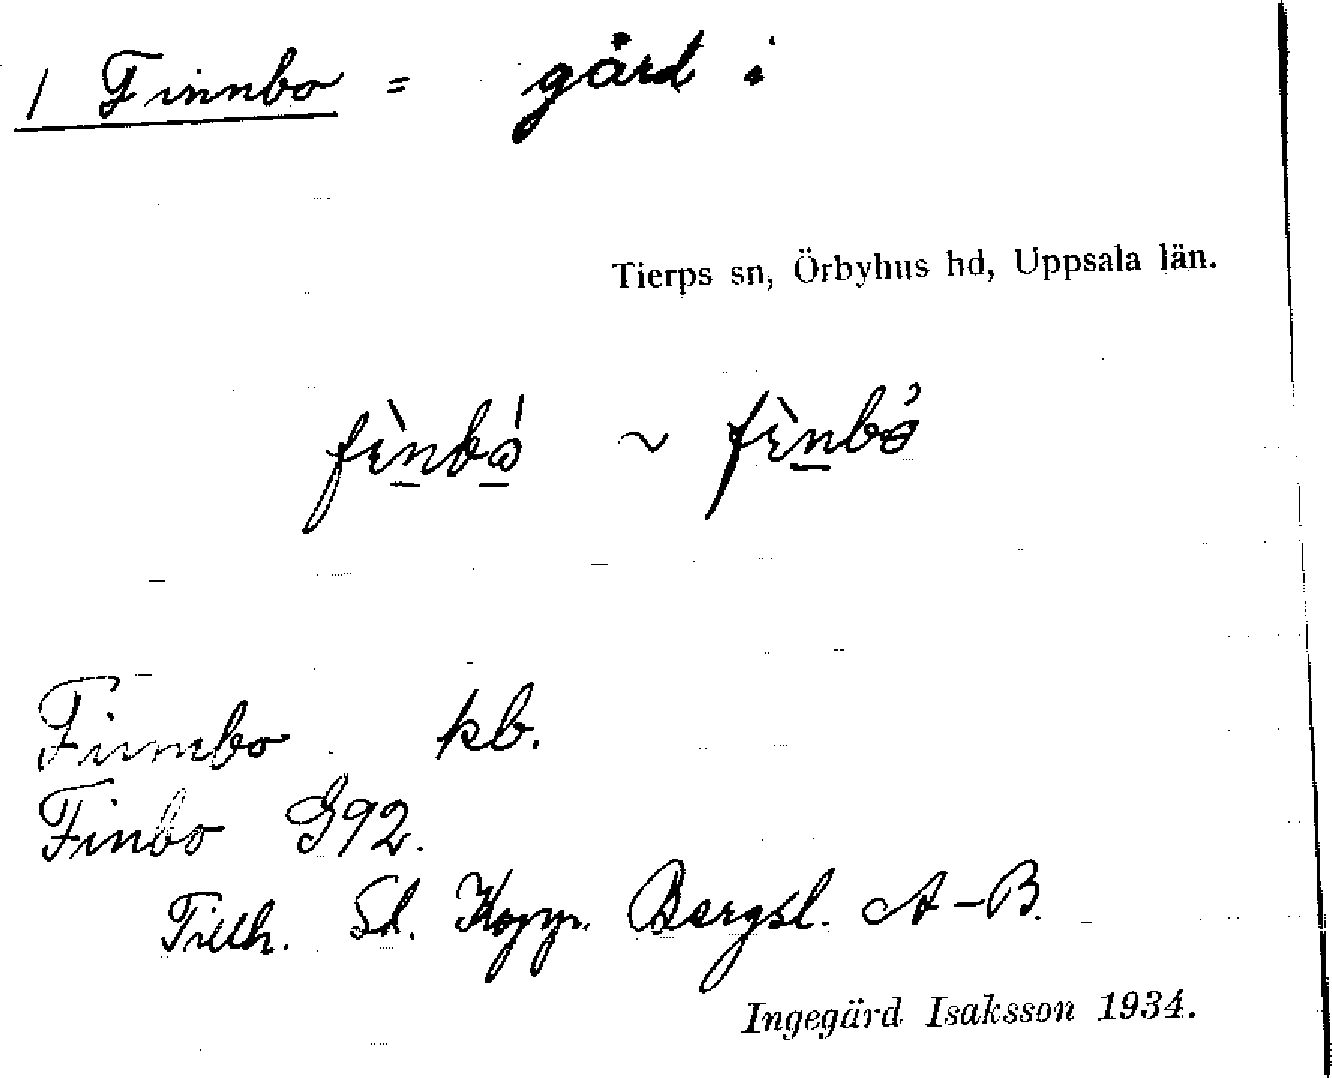 1 Finnbo = gård i
Tierps sn, Örbyhus hd, Uppsala län.
fìnbó ~ fìnbó
Finnbo kb.
Finbo G92.
Tillh. Sd. Kopp. Bergsl. A-B.
Ingegärd Isaksson 1934.